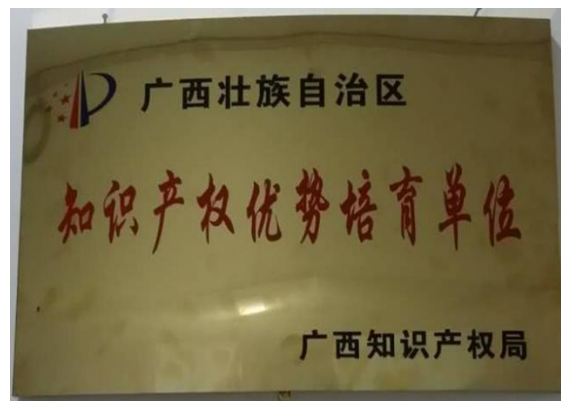 广西壮族自治区
知识产权优势培育单位
广西知识产权局